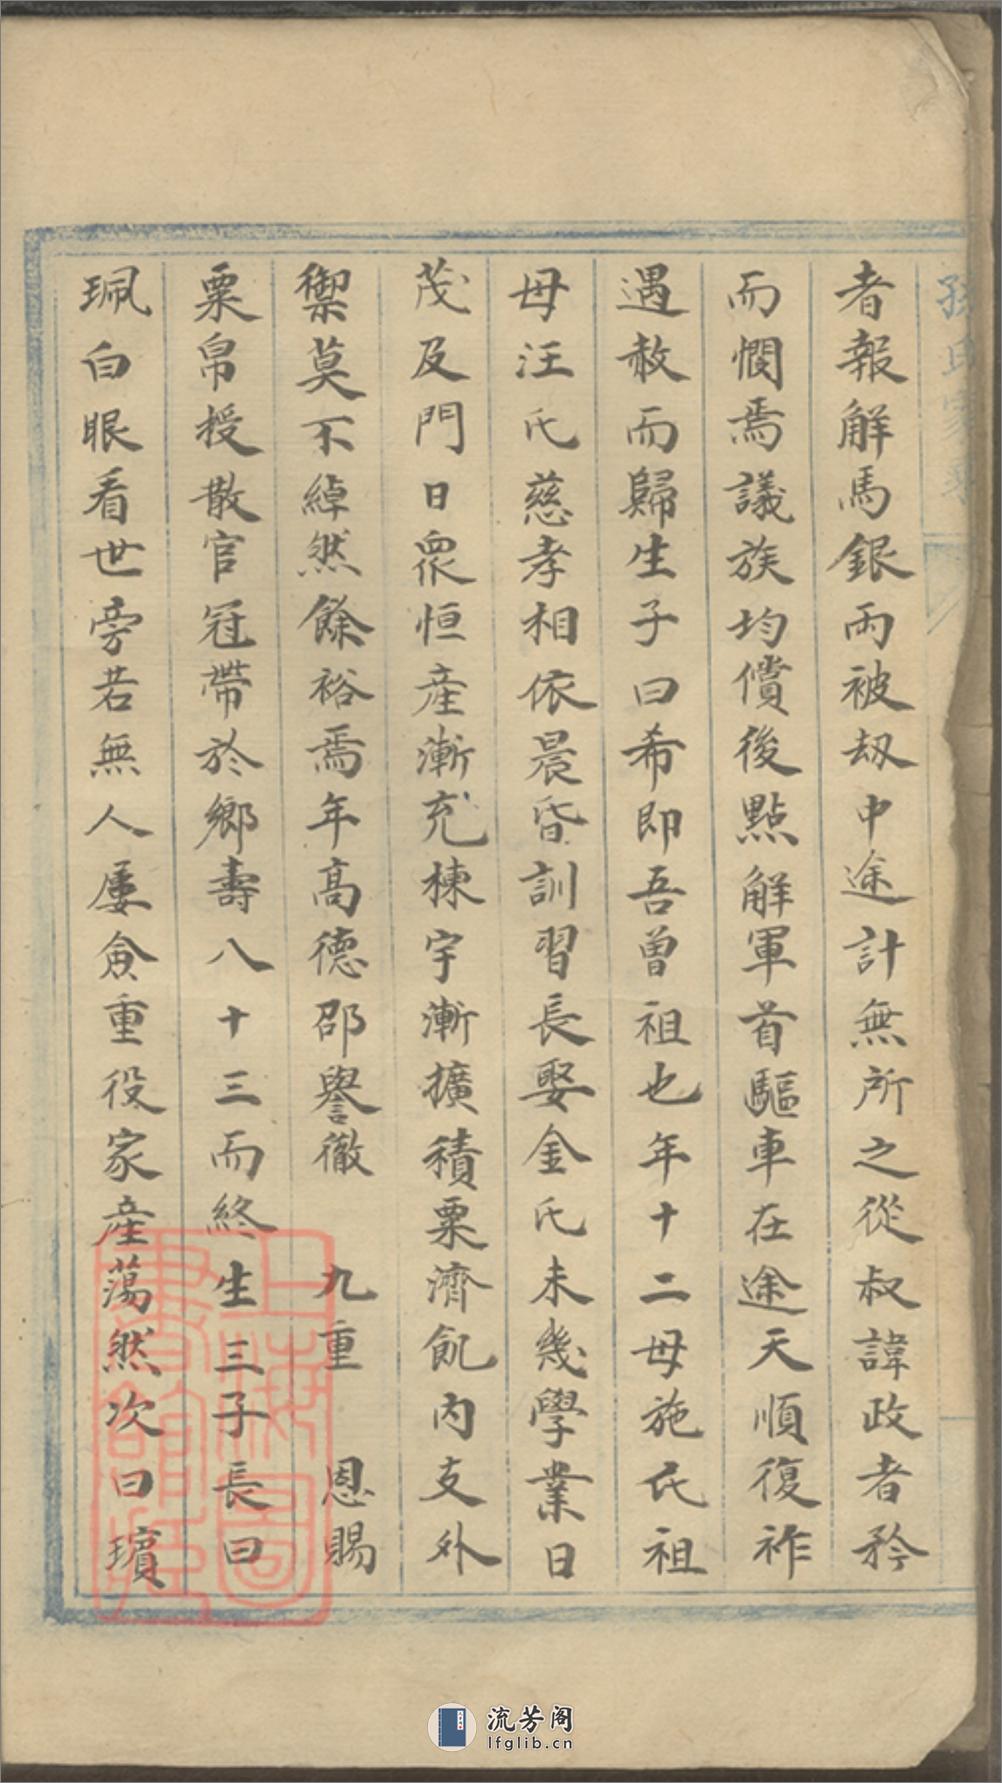 孫氏家乘
者報解馬銀兩被刼中途計無所之從叔諱政者矜
而憫焉議族均償後點解軍首驅車在途天順復祚
遇赦而歸生子曰希即吾曾祖也年十二母施氏祖
母汪氏慈孝相依晨昏訓習長娶金氏未幾學業日
茂及門日眾恒產漸充棟宇漸擴積粟濟飢内支外
禦莫不綽然餘裕焉年高德邵譽徹 九重 恩賜
粟帛授散官冠帶於鄉壽八十三而終生三子長曰
珮白眼看世旁若無人屢僉重役家產蕩然次曰璸
上海圖書館藏
流芳阁
lfglib.cn